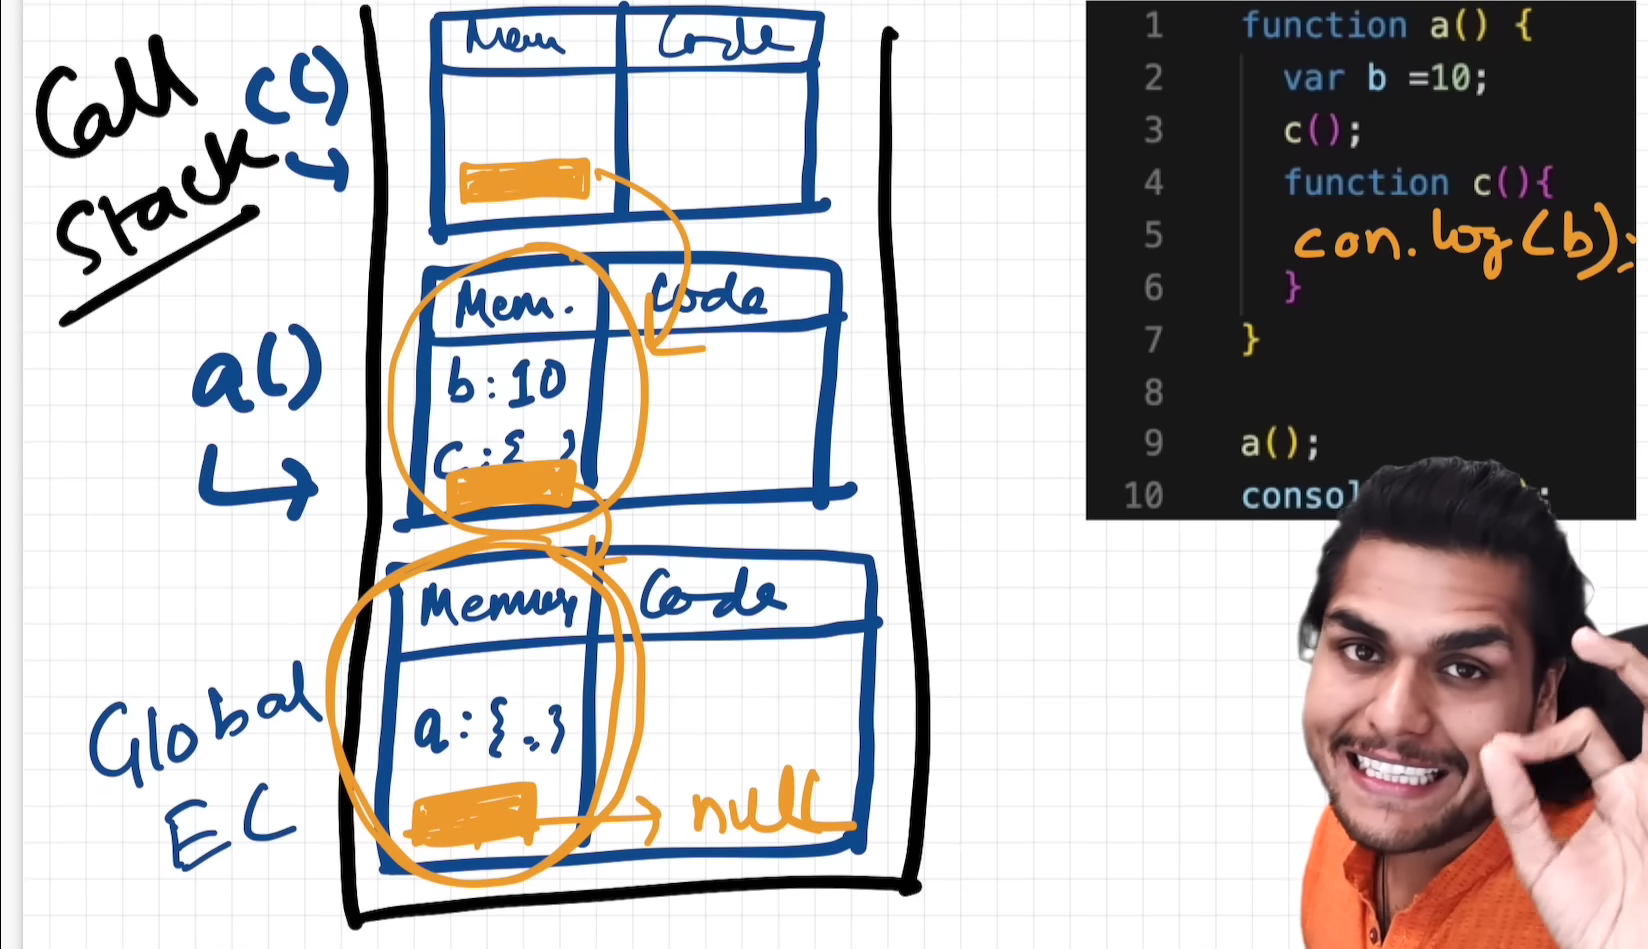 Call
Stack
c()
Mem Code
a()
Mem. Code
b:10
c:{ }
Global
EC
Memory Code
a:{.}
null
1 function a() {
2 var b =10;
3 c();
4 function c(){
5 con.log(b);
6 }
7 }
8
9 a();
10 consol